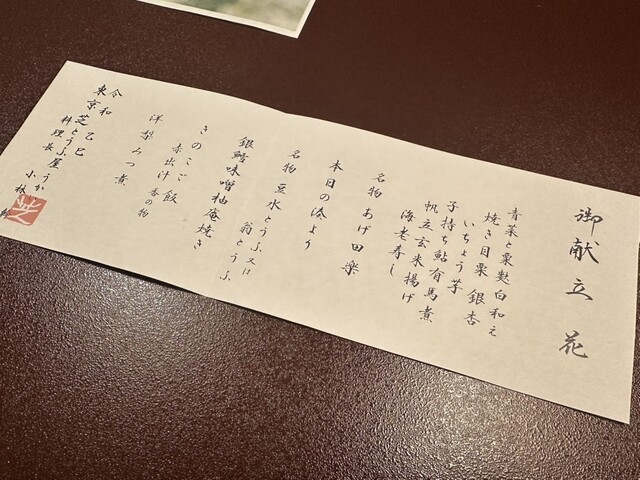 御献立 花
青菜と粟麩白和え
焼き目栗 銀杏
いちょう芋
子持ち鮎有馬煮
帆立玄米揚げ
海老寿し
名物 あげ田楽
本日の湊より
名物 豆水とうふ 又は
翁とうふ
銀鱈味噌柚庵焼き
きのこご飯
赤出汁 香の物
洋梨みつ煮
令和 乙巳
東京芝 とうふ屋うかい
料理長 小林